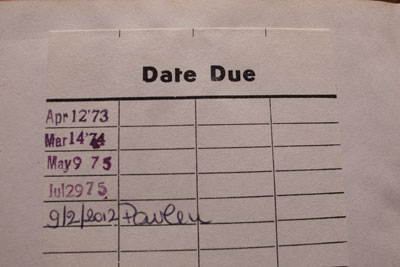 Date Due
Apr 12 '73
Mar 14 '74
May 9 75
Jul 29 75
9/2/2012